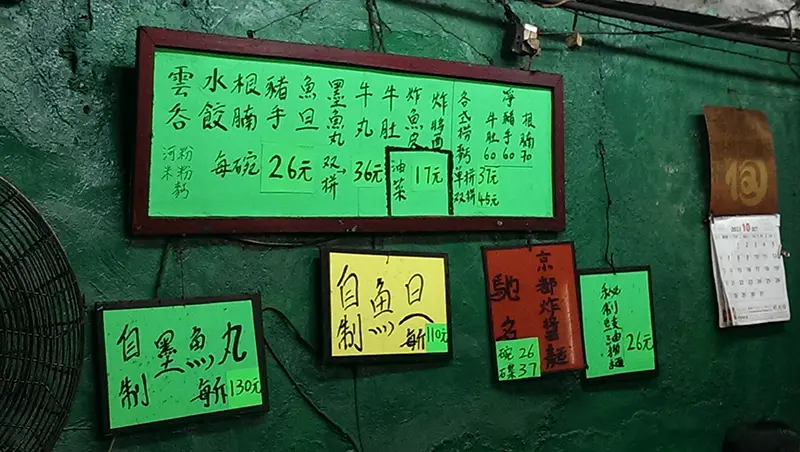 雲吞
水餃
根腩
豬手
魚旦
墨魚丸
牛丸
牛肚
炸魚皮
炸醬
河粉
米粉
麪
每碗 26元
双拼→36元
油菜 17元
各式撈麪
單拼 37元
双拼 45元
淨
牛肚 60
豬手 60
根腩 90
自制墨魚丸
每斤130元
自制魚旦
每斤110元
馳名
京都炸醬麵
碗 26
碟 37
秘制豉油撈麵
26元
2013 10 OCT